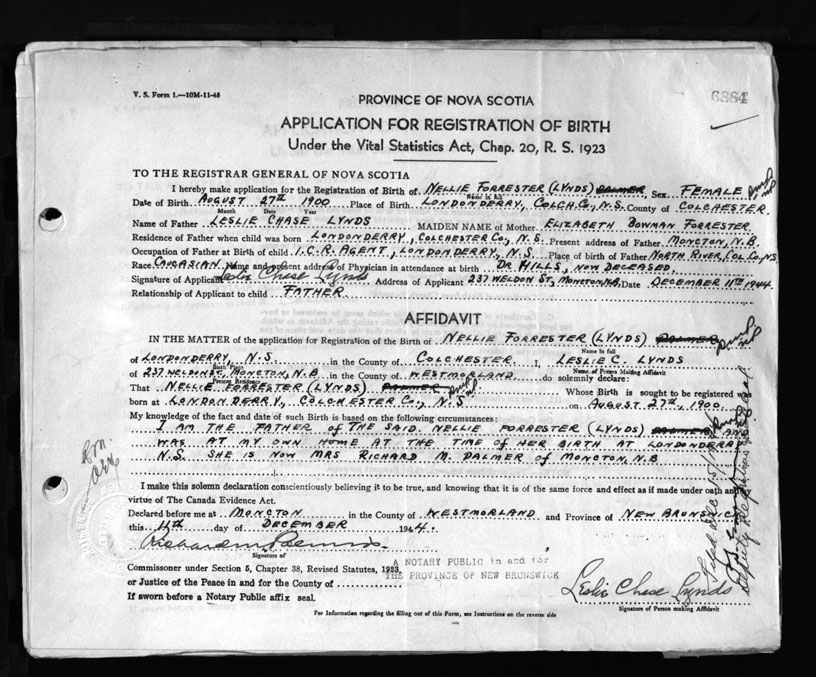 V. S. Form 1.—10M-11-43
6384
PROVINCE OF NOVA SCOTIA
APPLICATION FOR REGISTRATION OF BIRTH
Under the Vital Statistics Act, Chap. 20, R. S. 1923
TO THE REGISTRAR GENERAL OF NOVA SCOTIA
I hereby make application for the Registration of Birth of NELLIE FORRESTER (LYNDS) PALMER, Sex FEMALE
Name in full
Date of Birth AUGUST 27TH 1900 Place of Birth LONDONDERRY, COLCH. CO., N.S. County of COLCHESTER
Month Date Year
Name of Father LESLIE CHASE LYNDS MAIDEN NAME of Mother ELIZABETH BOWMAN FORRESTER
Residence of Father when child was born LONDONDERRY, COLCHESTER CO., N.S. Present address of Father MONCTON, N.B.
Occupation of Father at Birth of child I.C.R. AGENT, LONDONDERRY, N.S. Place of birth of Father NORTH RIVER, COL. CO., N.S.
Race CAUCASIAN Name and present address of Physician in attendance at birth DR HILLS, NOW DECEASED,
Signature of Applicant Leslie Chase Lynds Address of Applicant 237 WELDON ST, MONCTON, N.B. Date DECEMBER 11TH 1944
Relationship of Applicant to child FATHER
AFFIDAVIT
IN THE MATTER of the application for Registration of the Birth of NELLIE FORRESTER (LYNDS) PALMER
Name in full
of LONDONDERRY, N.S. in the County of COLCHESTER I, LESLIE C. LYNDS
Birth Place
Name of Person Making Affidavit
of 237 WELDON ST, MONCTON, N.B. in the County of WESTMORLAND do solemnly declare:
Person Residence
That NELLIE FORRESTER (LYNDS) PALMER Whose Birth is sought to be registered was
born at LANDONDERRY, COLCHESTER CO., N.S on AUGUST 27TH, 1900
My knowledge of the fact and date of such Birth is based on the following circumstances:
I AM THE FATHER OF THE SAID NELLIE FORRESTER (LYNDS) PALMER AND
WAS AT MY OWN HOME AT THE TIME OF HER BIRTH AT LONDONDERRY
N.S. SHE IS NOW MRS RICHARD M. PALMER OF MONCTON, N.B
I make this solemn declaration conscientiously believing it to be true, and knowing that it is of the same force and effect as if made under oath and by
virtue of The Canada Evidence Act.
Declared before me at MONCTON in the County of WESTMORLAND and Province of NEW BRUNSWICK
this 11th day of DECEMBER 1944.
Signature of
Commissioner under Section 5, Chapter 38, Revised Statutes, 1923,
or Justice of the Peace in and for the County of
A NOTARY PUBLIC in and for
THE PROVINCE OF NEW BRUNSWICK
If sworn before a Notary Public affix seal.
Leslie Chase Lynds
Signature of Person making Affidavit
For Information regarding the filling out of this Form, see Instructions on the reverse side